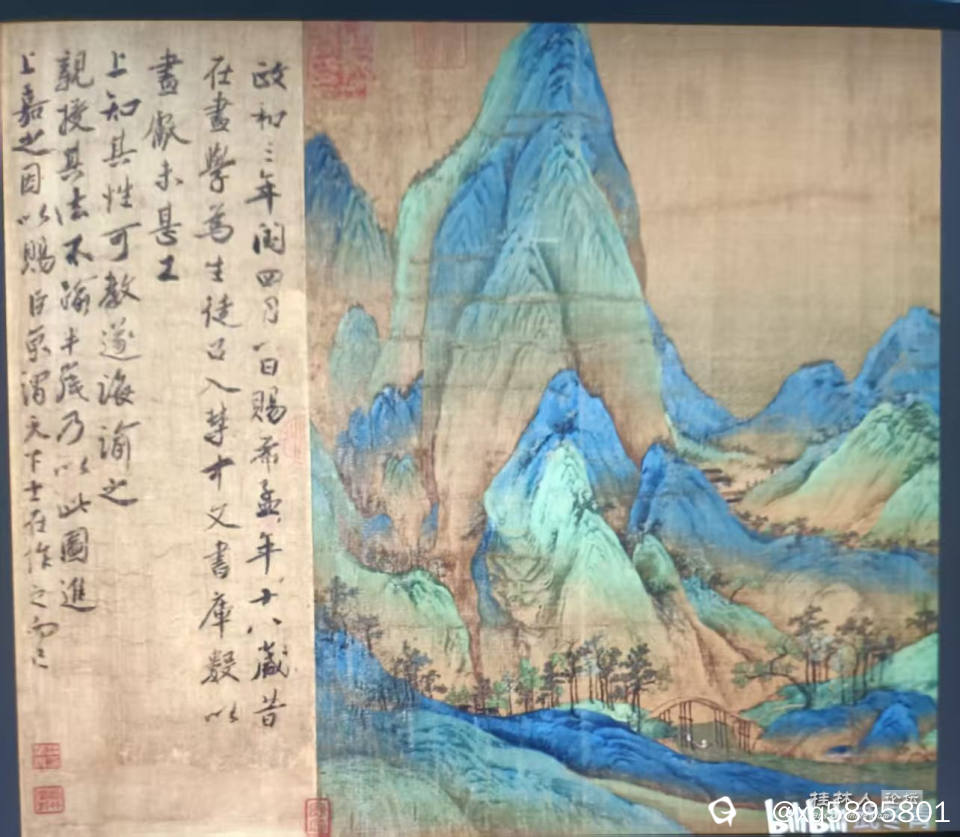 政和三年閏四月一日賜希孟年十八歲昔
在畫學為生徒召入禁中文書庫數以
畫獻未甚工
上知其性可教遂誨諭之
親授其法不踰半歲乃以此圖進
上嘉之因以賜臣京謂天下士在作之而已
桂林人论坛
@xq5895801